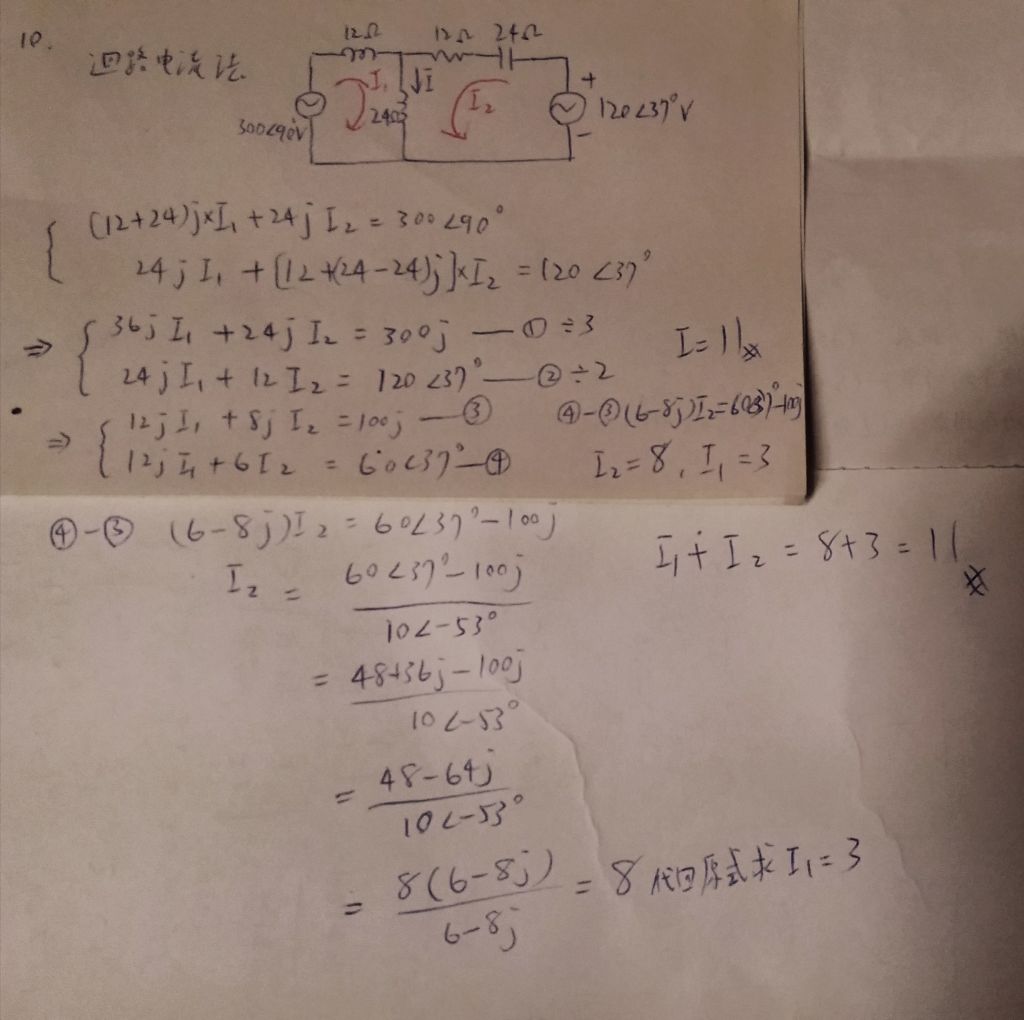 10.
迴路電流法
12Ω 12Ω 24Ω
I₁ ↓I I₂
300∠90°V 24Ω + 120∠37°V −
(12+24)j×I₁ + 24j I₂ = 300∠90°
24j I₁ + [12+(24-24)j]×I₂ = 120∠37°
⇒ { 36j I₁ + 24j I₂ = 300j —① ÷3
24j I₁ + 12 I₂ = 120∠37° —② ÷2
I = 11
⇒ { 12j I₁ + 8j I₂ = 100j —③
12j I₁ + 6 I₂ = 60∠37° —④
④-③ (6-8j)I₂=60∠37°-100j
I₂=8, I₁=3
④-③ (6-8j)I₂ = 60∠37°-100j
I₂ = 60∠37°-100j / 10∠-53°
= 48+36j-100j / 10∠-53°
= 48-64j / 10∠-53°
= 8(6-8j) / 6-8j = 8 代回原式求 I₁=3
I₁+I₂ = 8+3 = 11